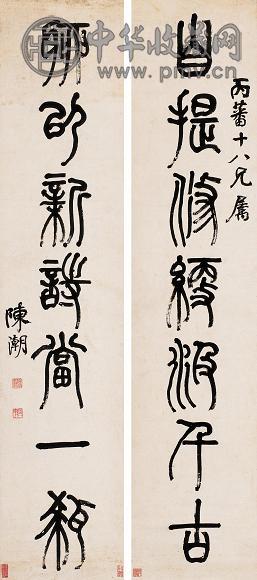 中华收藏网
www.pmv.cn
丙蕃十八兄屬
自提修綆汲千古
聊以新詩當一
陳潮